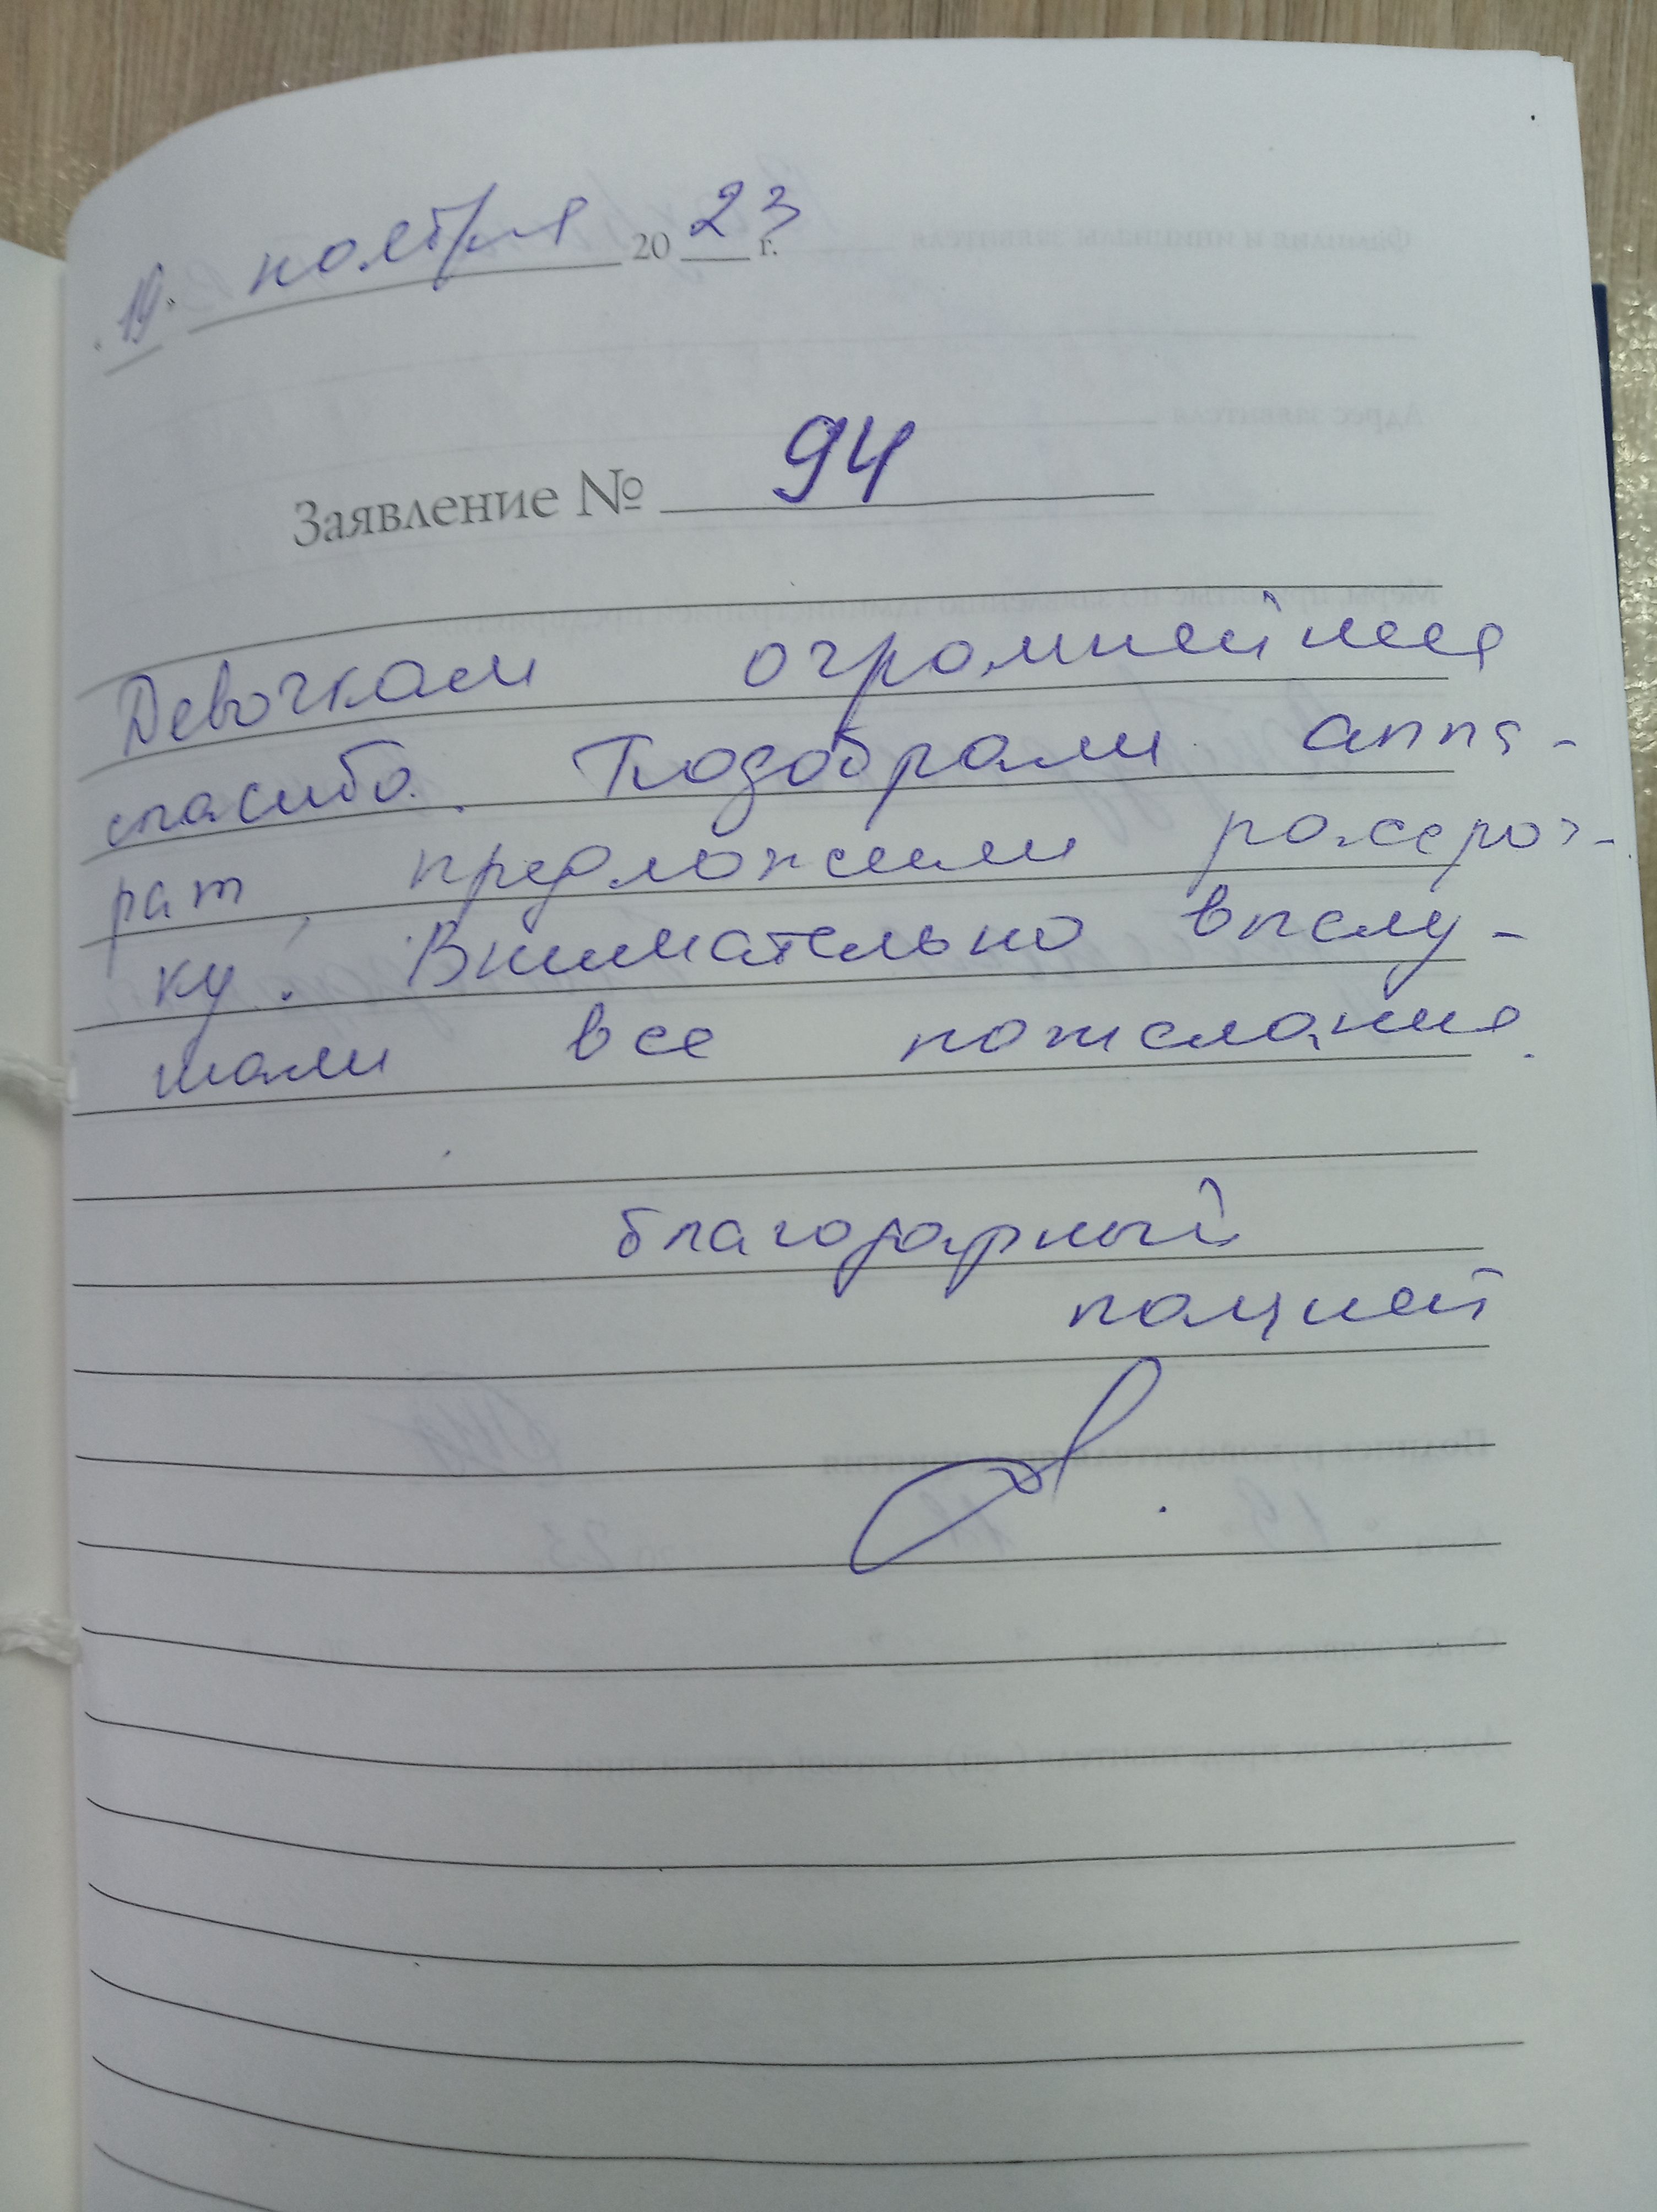 « 19 » ноября 2023 г.
Заявление № 94
Девочкам огромнейшее
спасибо. Подобрали аппа-
рат, предложили рассроч-
ку. Внимательно выслу-
шали все пожелания.
благодарный